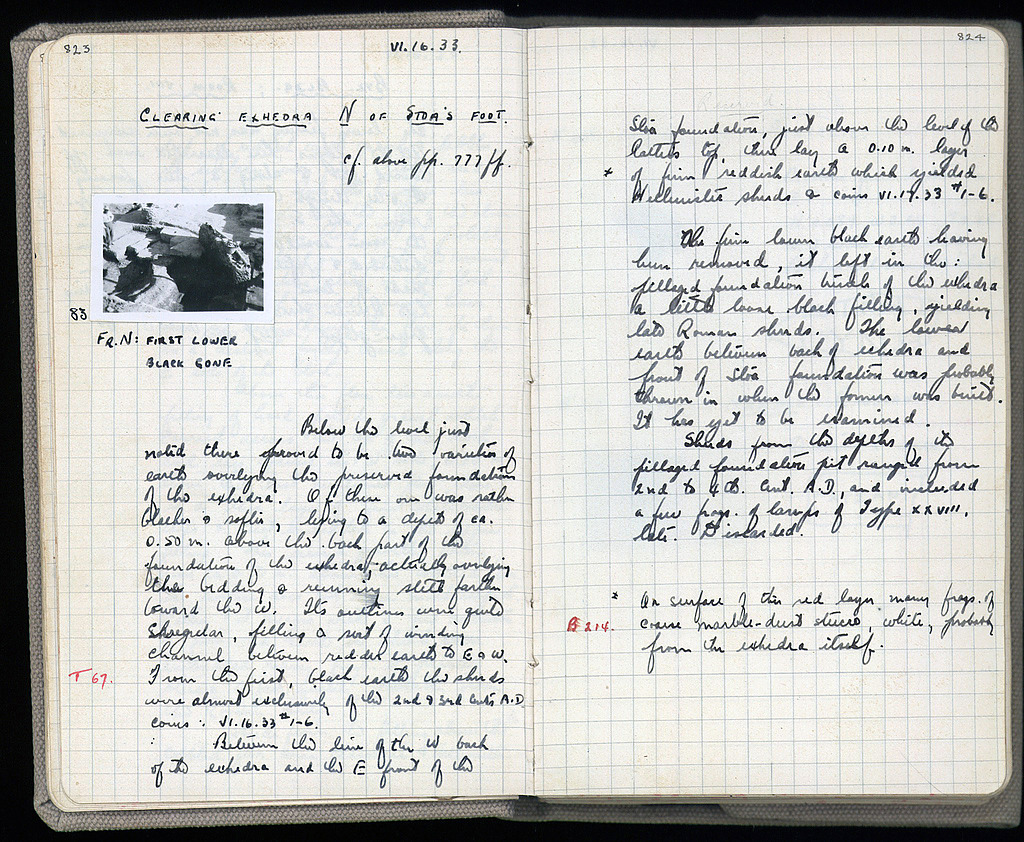 823
VI.16.33.
CLEARING EXHEDRA N OF STOA'S FOOT.
cf. above pp. 777 ff.
83
FR. N: FIRST LOWER
BLACK GONE
Below the level just
noted there proved to be two varieties of
earth overlying the preserved foundations
of the exhedra. Of these one was rather
blacker & softer, lying to a depth of ca.
0.50 m. above the back part of the
foundation of the exhedra, actually overlying
the bedding & running still farther
toward the W. Its outlines were quite
irregular, filling a sort of winding
channel between redder earth to E & W.
T 67.
From the first, black earth the sherds
were almost exclusively of the 2nd & 3rd Cents A.D.
coins: VI.16.33 #1-6.
Between the line of the W back
of the exhedra and the E front of the
824
Reserved.
Stoa foundation, just above the level of the
latter's top, there lay a 0.10 m. layer
* of firm reddish earth which yielded
Hellenistic sherds & coins VI.17.33 #1-6.
The firm lower black earth having
been removed, it left in the
pillaged foundation trench of the exhedra
a little loose black filling, yielding
late Roman sherds. The lower
earth between back of exhedra and
front of Stoa foundation was probably
thrown in when the former was built.
It has yet to be examined.
Sherds from the depths of the
pillaged foundation pit ranged from
2nd to 4th. Cent. A.D., and included
a few frags. of lamps of Type XXVIII,
late. Discarded.
* On surface of this red layer many frags. of
B 214.
coarse marble-dust stucco, white, probably
from the exhedra itself.